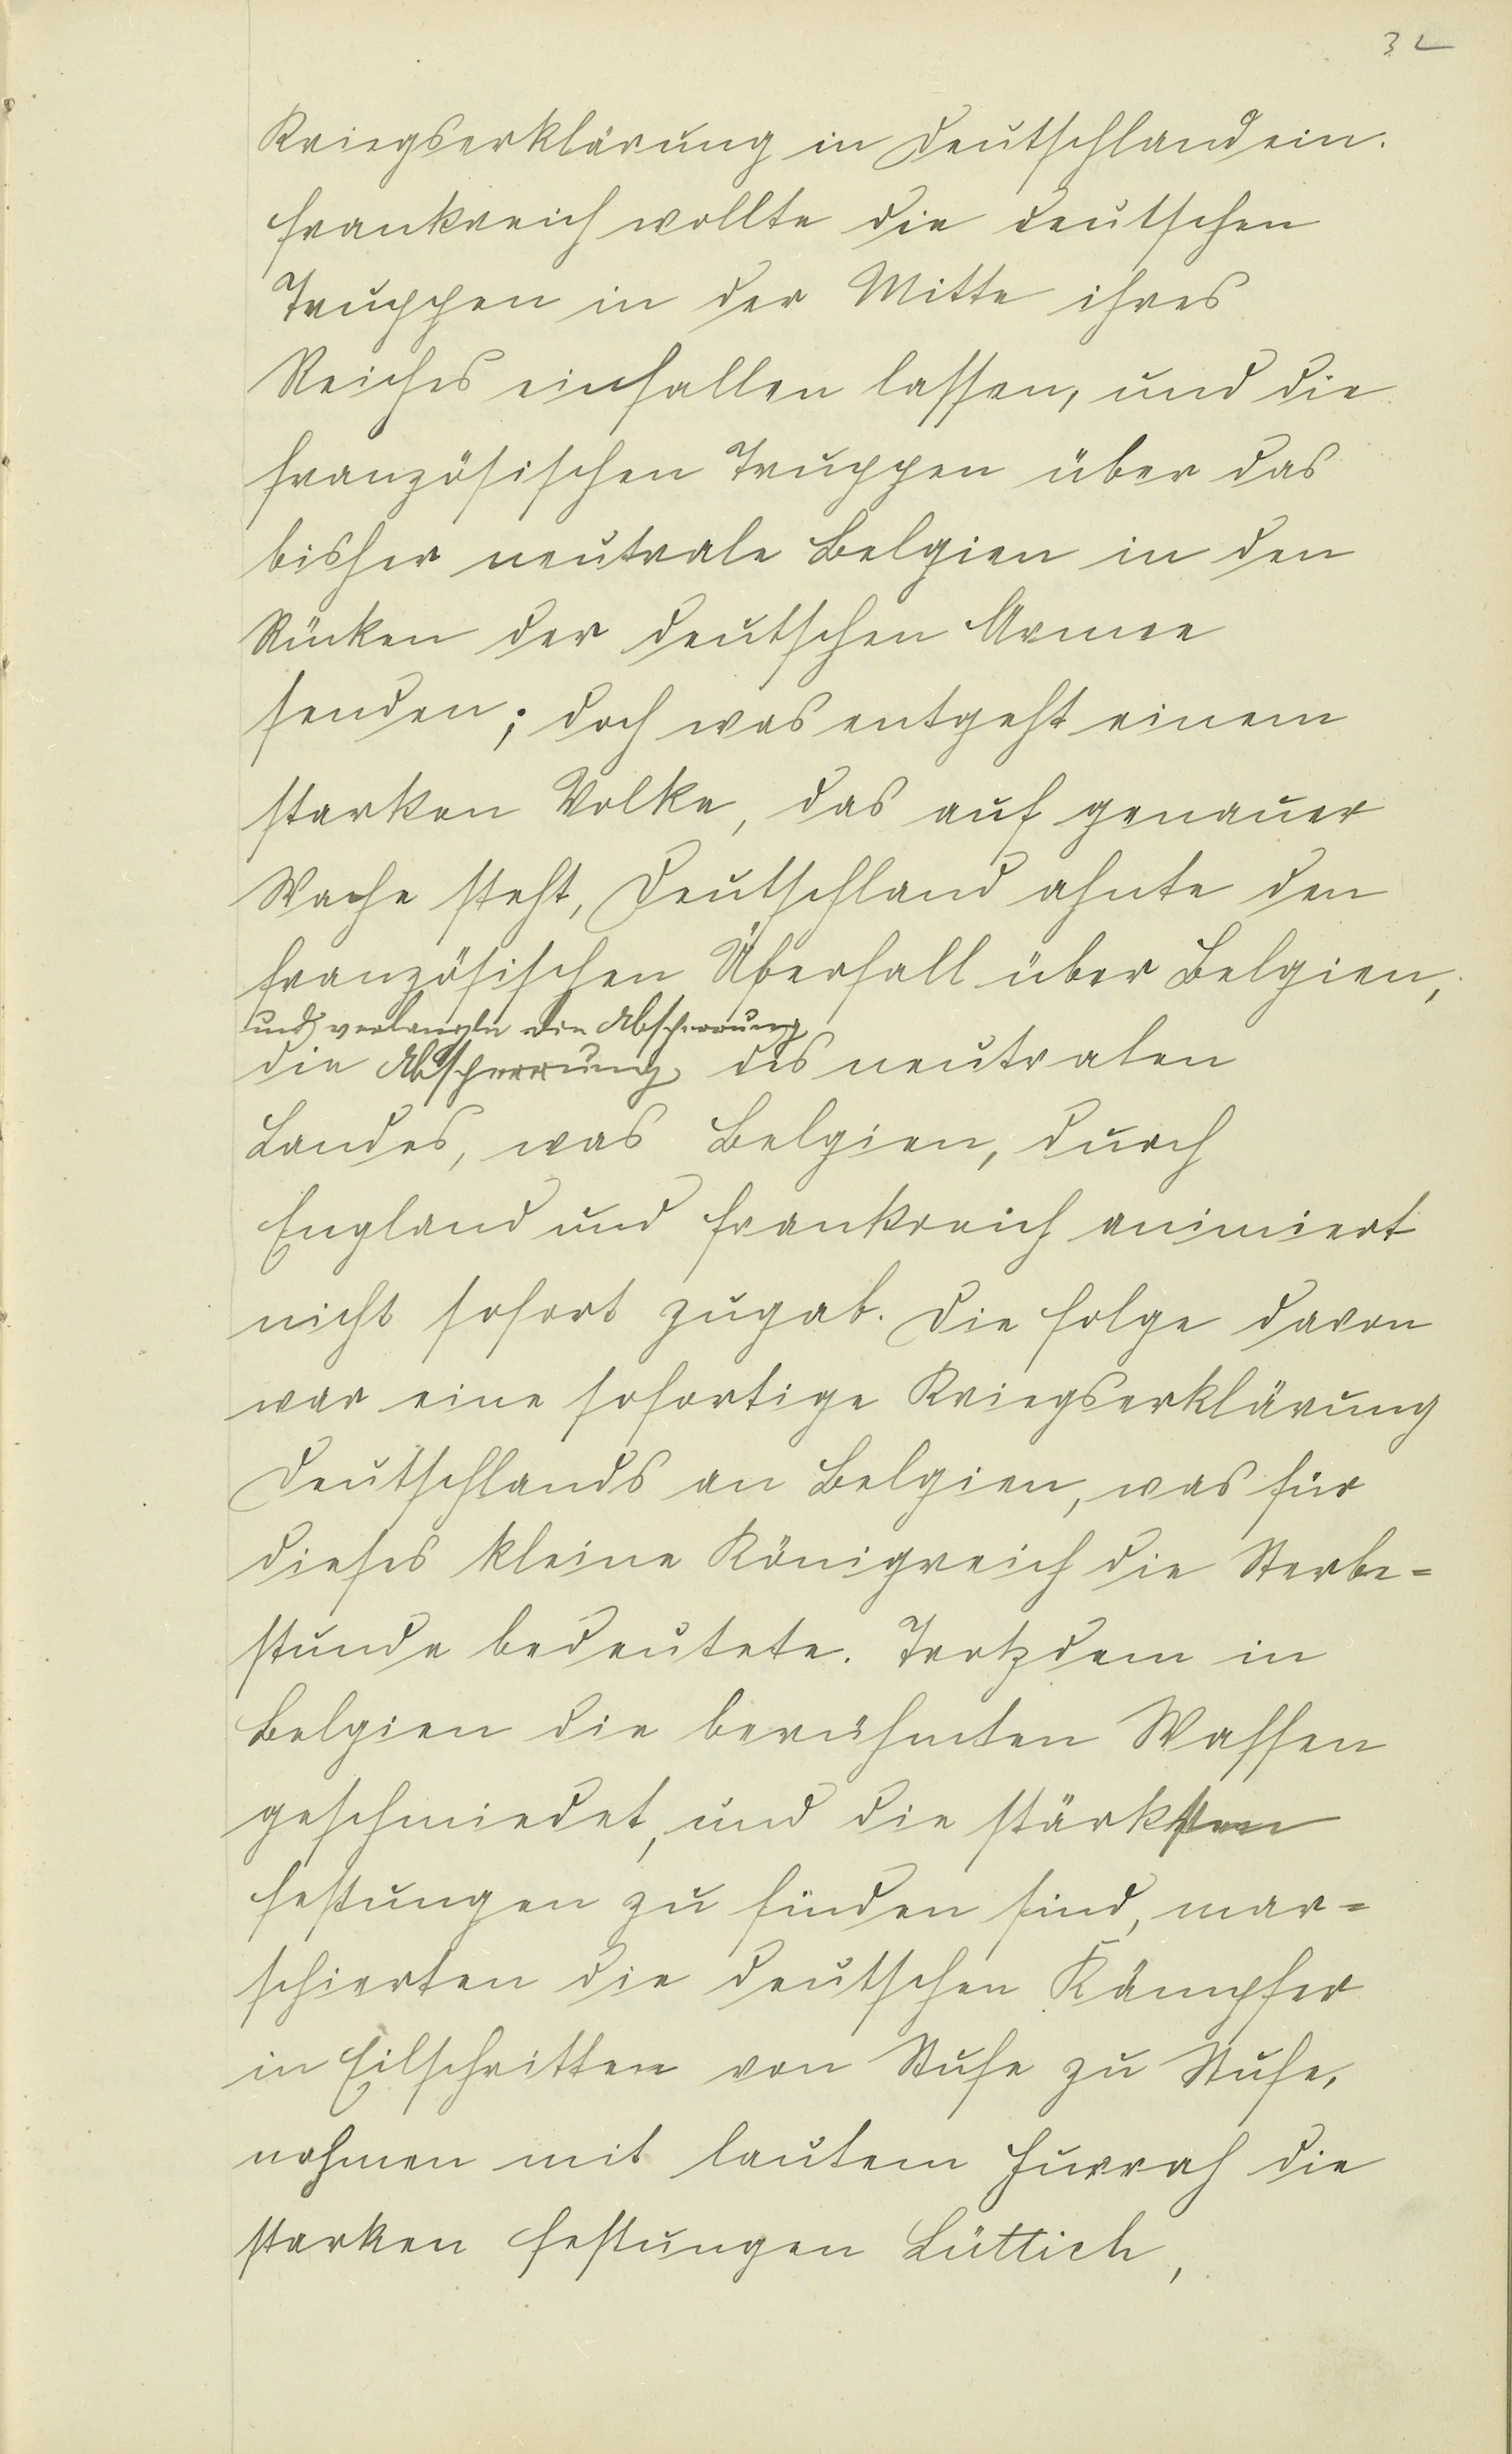 32
Kriegserklärung in Deutschland ein.
Frankreich wollte die deutschen
Truppen in der Mitte ihres
Reiches einfallen lassen, und die
französischen Truppen über das
bisher neutrale Belgien in den
Rücken der deutschen Armee
senden; doch was entgeht einem
starken Volke, das auf genauer
Wache steht, Deutschland ahnte den
französischen Überfall über Belgien,
und verlangte die Absperrung
die Absperrung des neutralen
Landes, was Belgien, durch
England und Frankreich animiert
nicht sofort zugab. Die Folge davon
war eine sofortige Kriegserklärung
Deutschlands an Belgien, was für
dieses kleine Königreich die Sterbe=
stunde bedeutete. Trotzdem in
Belgien die berühmten Waffen
geschmiedet, und die stärksten
Festungen zu finden sind, mar=
schierten die deutschen Kämpfer
in Eilschritten von Stufe zu Stufe,
nahmen mit lautem Hurrah die
starken Festungen Lüttich,